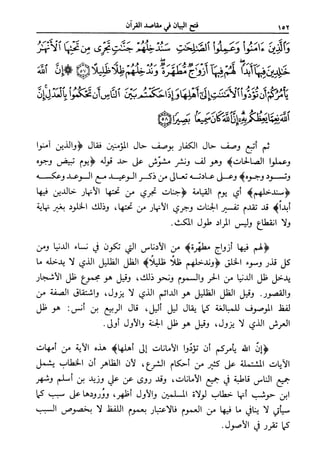 ١٥٢
فتح البيان في مقاصد القرآن
وَالَّذِينَ ءَامَنُوا وَعَمِلُوا الصَّالِحَاتِ سَنُدْخِلُهُمْ جَنَّاتٍ تَجْرِي مِن تَحْتِهَا الْأَنْهَارُ
خَالِدِينَ فِيهَا أَبَدًا لَّهُمْ فِيهَا أَزْوَاجٌ مُّطَهَّرَةٌ وَنُدْخِلُهُمْ ظِلًّا ظَلِيلًا ﴿٥٧﴾ إِنَّ اللَّهَ
يَأْمُرُكُمْ أَن تُؤَدُّوا الْأَمَانَاتِ إِلَىٰ أَهْلِهَا وَإِذَا حَكَمْتُم بَيْنَ النَّاسِ أَن تَحْكُمُوا بِالْعَدْلِ إِنَّ اللَّهَ نِعِمَّا
يَعِظُكُم بِهِ إِنَّ اللَّهَ كَانَ سَمِيعًا بَصِيرًا ﴿٥٨﴾
ثم أتبع وصف حال الكفار بوصف حال المؤمنين فقال ﴿والذين آمنوا
وعملوا الصالحات﴾ وهو لف ونشر مشوّش على حد قوله ﴿يوم تبيض وجوه
وتسود وجوه﴾ وعلى عادته تعالى من ذكر الوعيد مع الوعد وعكسه
﴿سندخلهم﴾ يوم القيامة ﴿جنات تجري من تحتها الأنهار خالدين فيها
أبداً﴾ قد تقدم تفسير الجنات وجري الأنهار من تحتها، وذلك الخلود بغير نهاية
ولا انقطاع وليس المراد طول المكث.
﴿لهم فيها أزواج مطهرة﴾ من الأدناس التي تكون في نساء الدنيا ومن
كل قذر وسوء الخلق ﴿وندخلهم ظلّاً ظليلاً﴾ الظل الظليل الذي لا يدخله ما
يدخل ظل الدنيا من الحر والسموم ونحو ذلك، وقيل هو مجموع ظل الأشجار
والقصور. وقيل الظل الظليل هو الدائم الذي لا يزول، واشتقاق الصفة من
لفظ الموصوف للمبالغة كما يقال ليل أليل، قال الربيع بن أنس: هو ظل
العرش الذي لا يزول، وقيل هو ظل الجنة والأول أولى.
﴿إنّ الله يأمركم أن تؤدّوا الأمانات إلى أهلها﴾ هذه الآية من أمهات
الآيات المشتملة على كثير من أحكام الشرع، لأن الظاهر أن الخطاب يشمل
جميع الناس قاطبة في جميع الأمانات، وقد روي عن علي وزيد بن أسلم وشهر
ابن حوشب أنها خطاب لولاة المسلمين والأول أظهر، وورودها على سبب كما
سيأتي لا ينافي ما فيها من العموم فالاعتبار بعموم اللفظ لا بخصوص السبب
كما تقرر في الأصول.